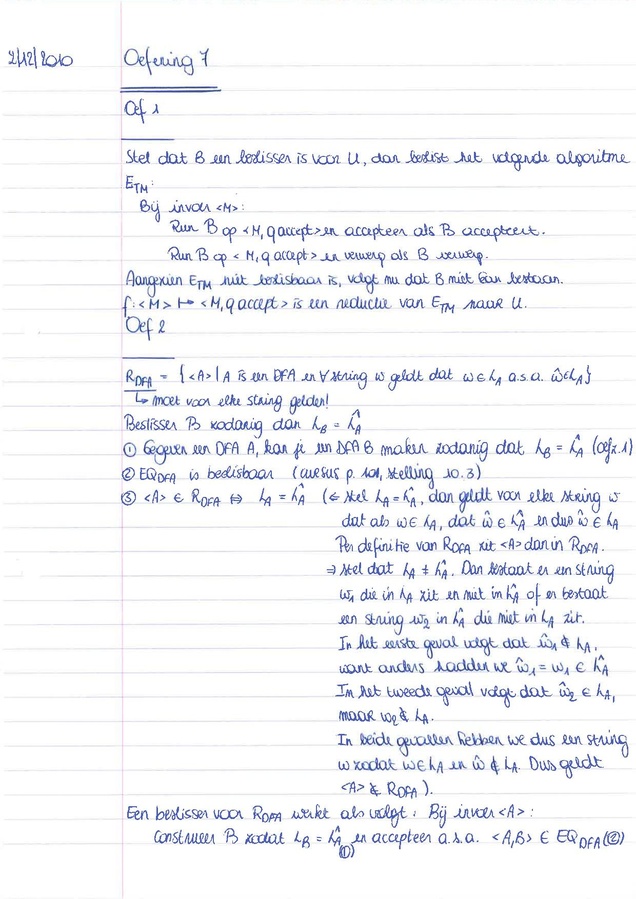 2/12/2010 Oefening 7
Oef 1
Stel dat B een beslisser is voor U, dan beslist het volgende algoritme
E_TM:
Bij invoer <M>:
Run B op <M, qaccept> en accepteer als B accepteert.
Run B op <M, qaccept> en verwerp als B verwerp.
Aangezien E_TM niet beslisbaar is, volgt nu dat B niet kan bestaan.
f: <M> ↦ <M, qaccept> is een reductie van E_TM naar U.
Oef 2
R_DFA = {<A> | A is een DFA en ∀ string w geldt dat w ∈ L_A a.s.a. ŵ ∈ L_A}
↳ moet voor elke string gelden!
Beslisser B zodanig dan L_B = L̂_A
① Gegeven een DFA A, kan je een DFA B maken zodanig dat L_B = L̂_A (oefz. 1)
② EQ_DFA is beslisbaar (cursus p. 101, stelling 10.3)
③ <A> ∈ R_DFA ⇔ L_A = L̂_A (⇐ stel L_A = L̂_A, dan geldt voor elke string w
dat als w ∈ L_A, dat ŵ ∈ L̂_A en dus ŵ ∈ L_A
Per definitie van R_DFA zit <A> dan in R_DFA.
⇒ stel dat L_A ≠ L̂_A. Dan bestaat er een string
w₁ die in L_A zit en niet in L̂_A of er bestaat
een string w₂ in L̂_A die niet in L_A zit.
In het eerste geval volgt dat ŵ₁ ∉ L_A,
want anders hadden we ŵ₁ = w₁ ∈ L̂_A
In het tweede geval volgt dat ŵ₂ ∈ L_A,
maar w₂ ∉ L_A.
In beide gevallen hebben we dus een string
w zodat w ∈ L_A en ŵ ∉ L_A. Dus geldt
<A> ∉ R_DFA).
Een beslisser voor R_DFA werkt als volgt: Bij invoer <A>:
Construeer B zodat L_B = L̂_A en accepteer a.s.a. <A,B> ∈ EQ_DFA (②)
(①)